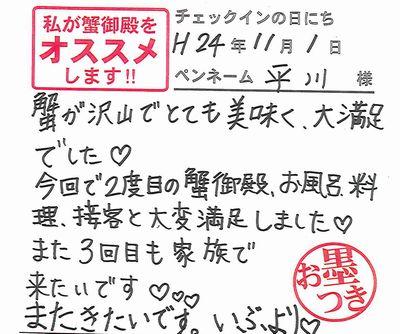 私が蟹御殿を
オススメ
します!!
チェックインの日にち
H24年11月1日
ペンネーム 平川 様
蟹が沢山でとても美味く、大満足
でした♡
今回で2度目の蟹御殿、お風呂、料
理、接客と大変満足しました♡
また3回目も家族で
来たいです♡♡♡
またきたいです。いぶより♡
お墨つき